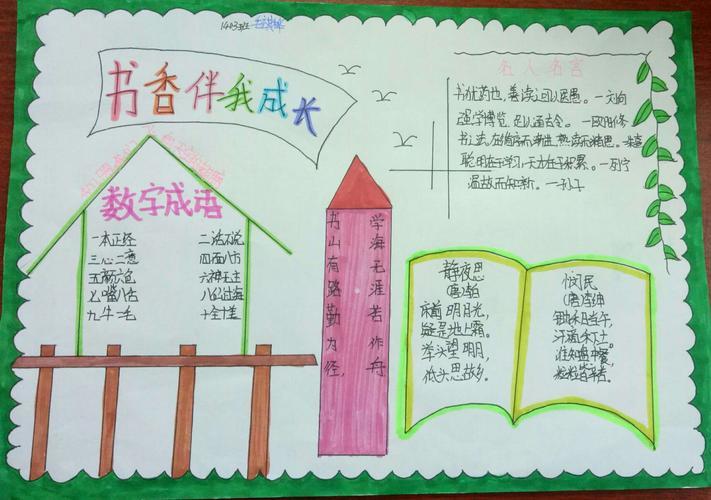 1403班
书香伴我成长
数字成语
一本正经 二话不说
三心二意 四面八方
五颜六色 六神无主
七嘴八舌 八仙过海
九牛一毛 十全十美
书山有路勤为径，
学海无涯苦作舟
名人名言
书犹药也，善读之可以医愚。一刘向
强学博览，足以通古今。一欧阳修
聪明在于学习，天才在于积累。一列宁
温故而知新。一孔子
静夜思
(唐)李白
床前明月光，
疑是地上霜。
举头望明月，
低头思故乡。
悯民
(唐)李绅
锄禾日当午，
汗滴禾下土。
谁知盘中餐，
粒粒皆辛苦。